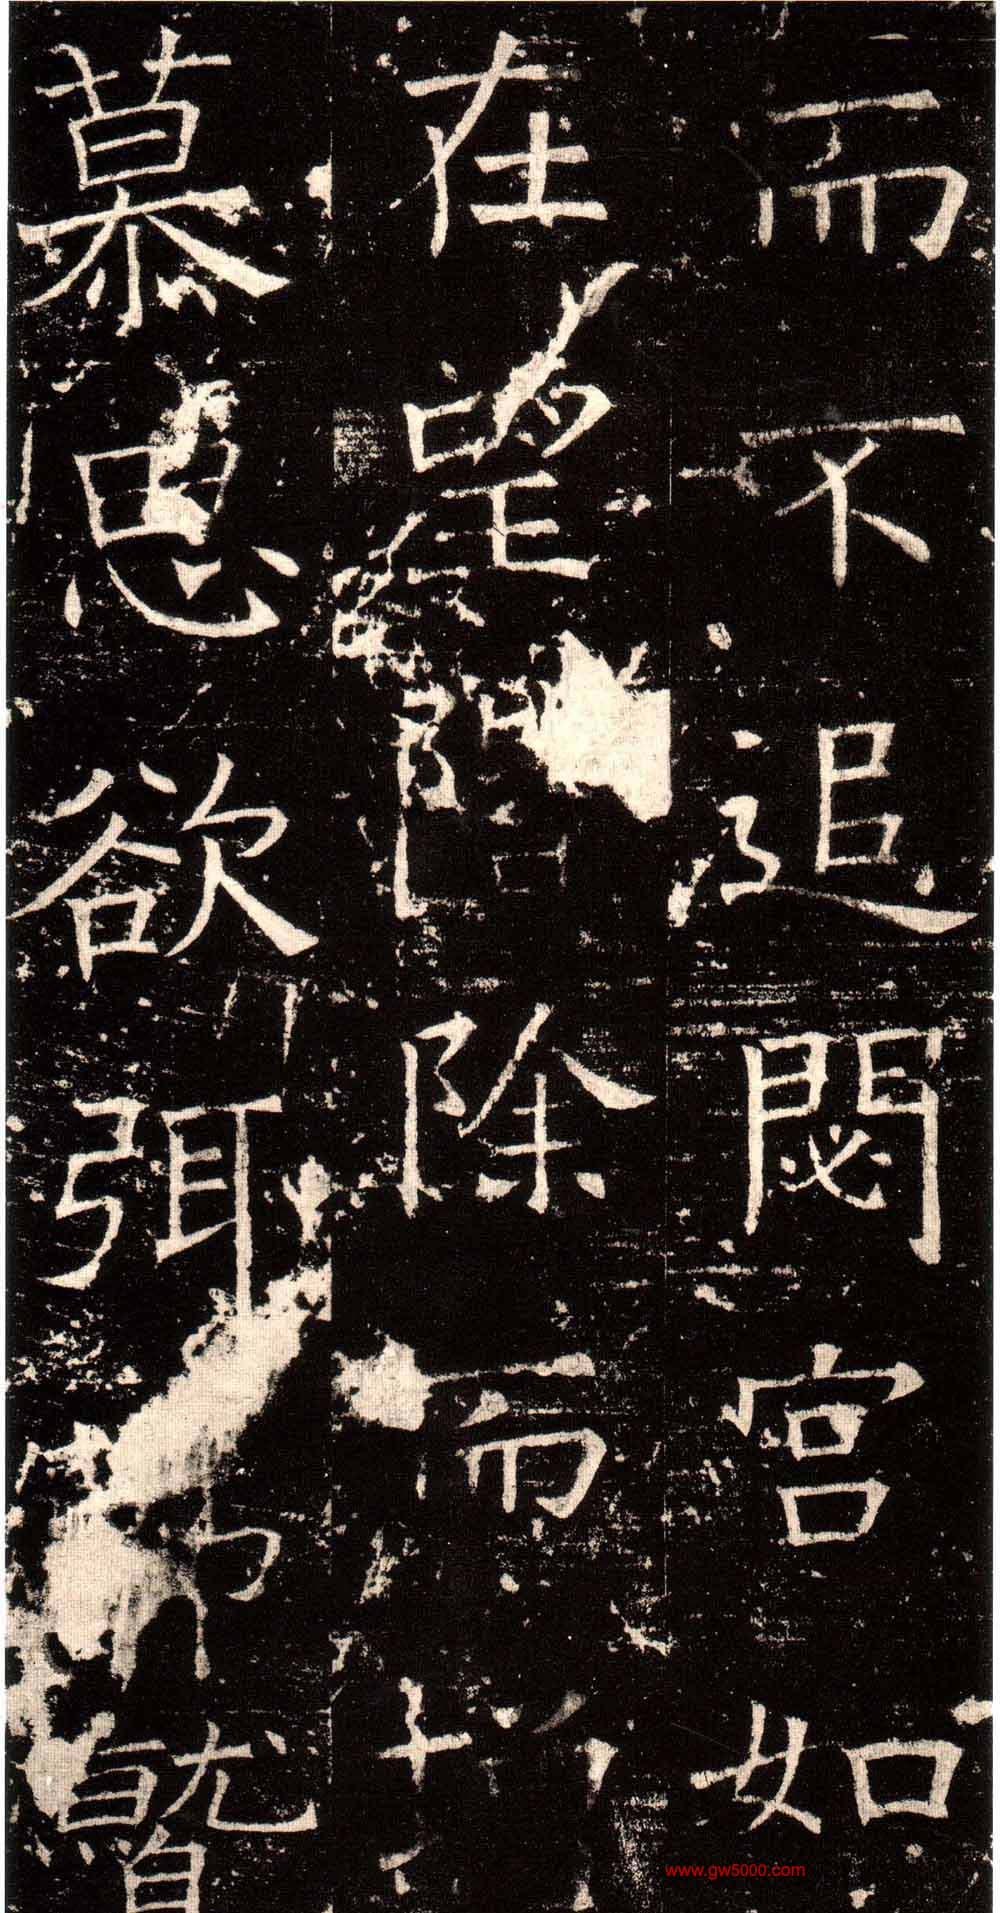 而不追閟宮如
在望階除而
慕思欲弭
www.gw5000.com